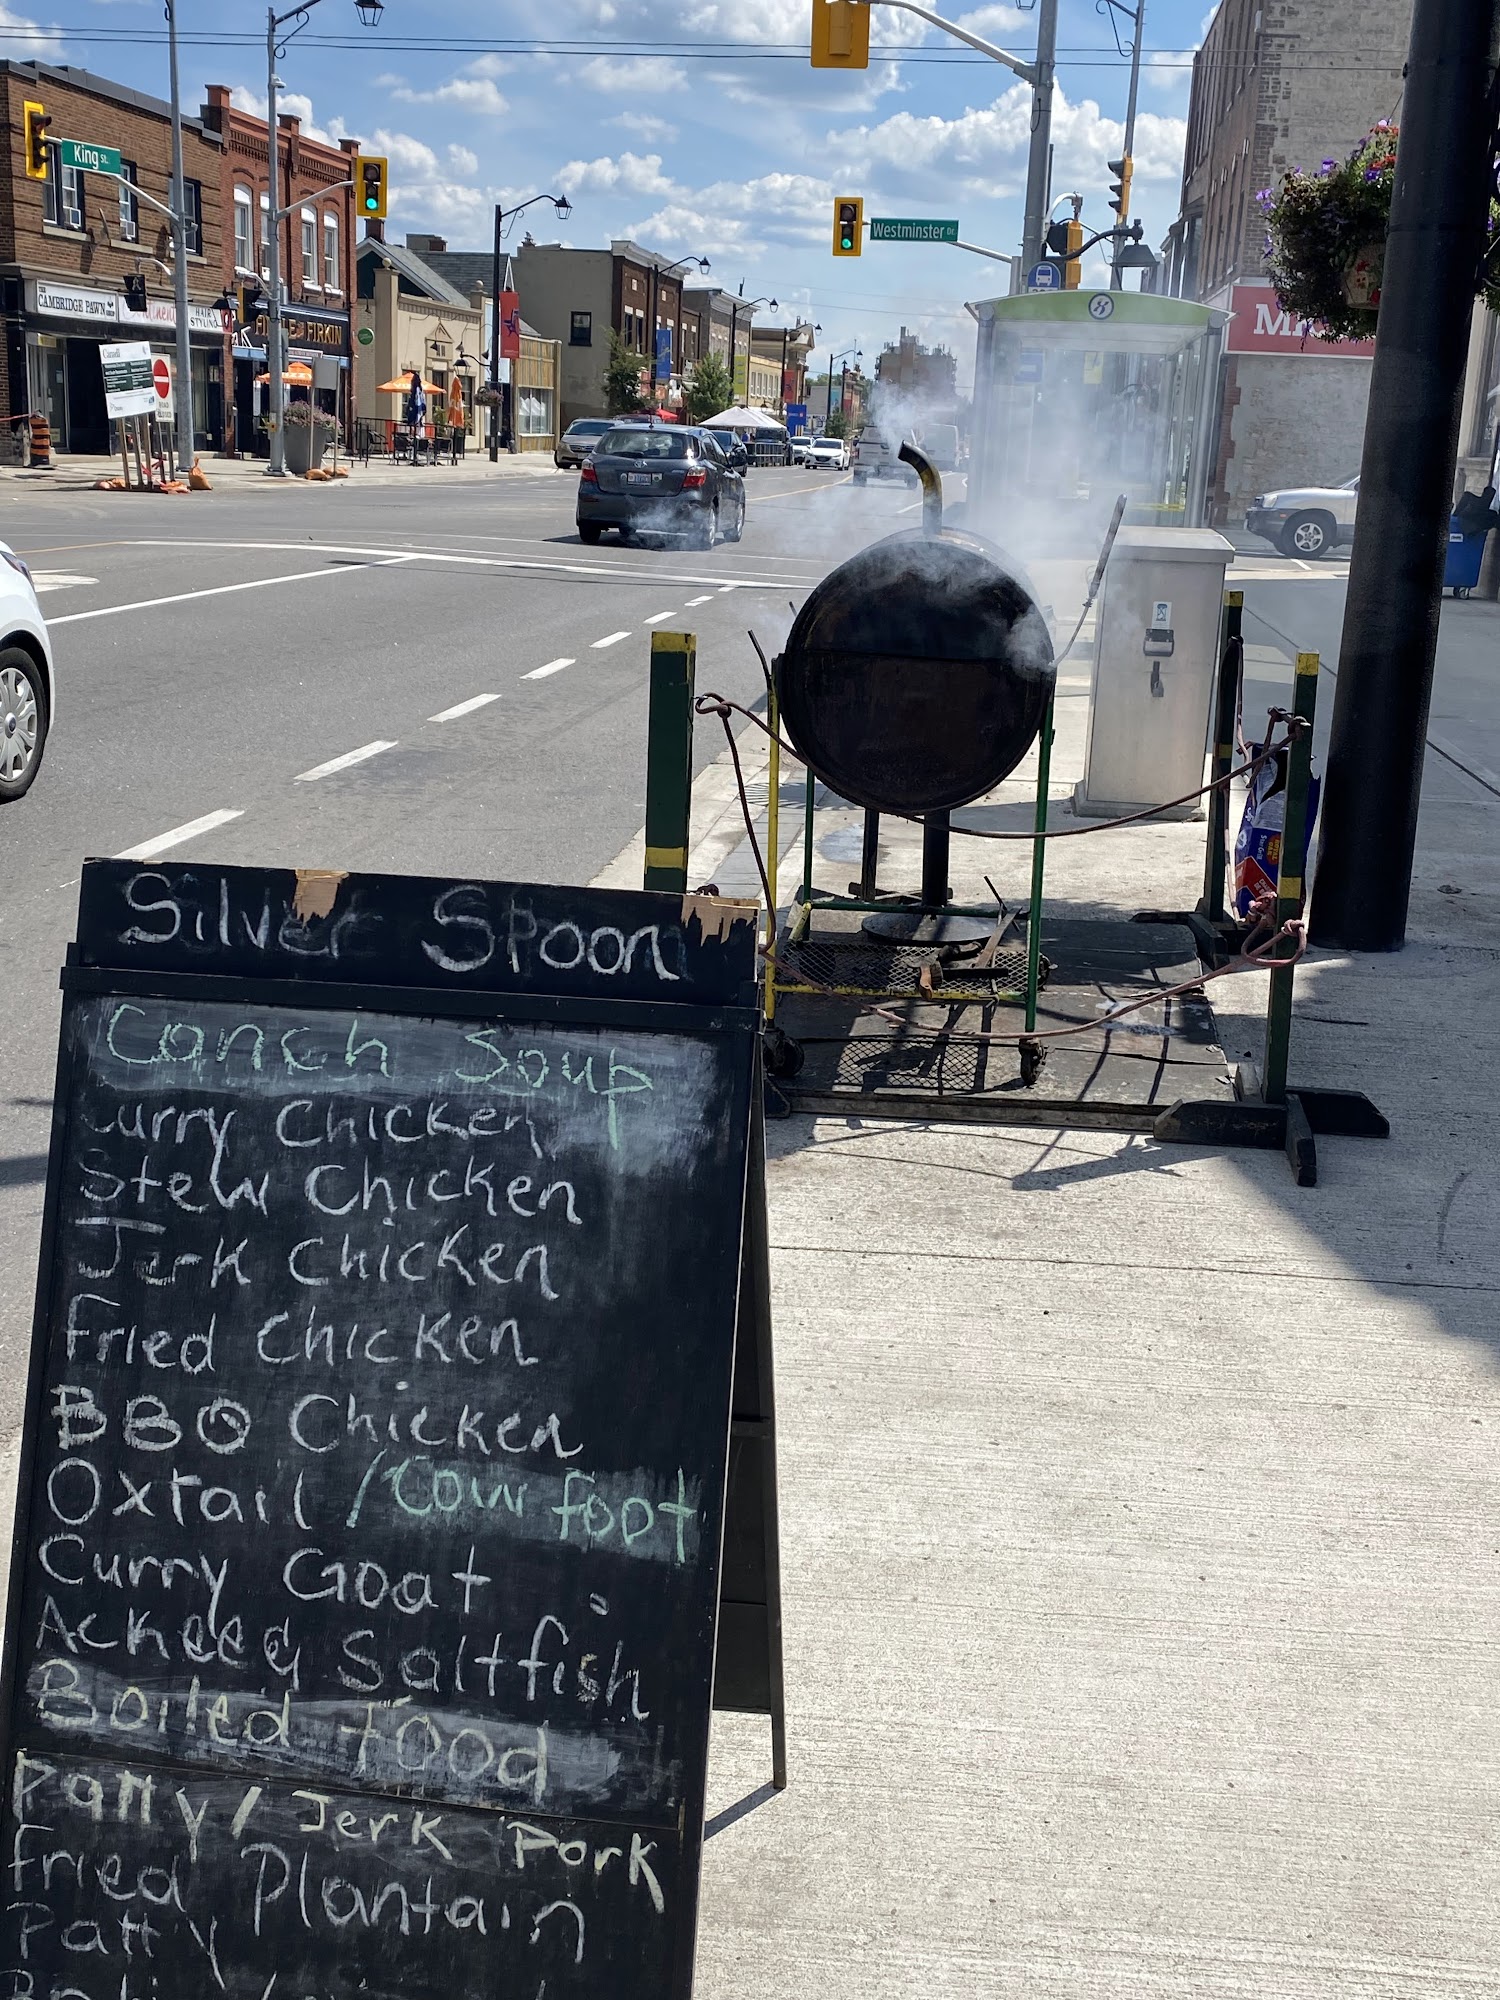 King St.
Westminster Dr.
THE CAMBRIDGE PAWN
HAIR
STYLING
FIRKIN
Canada
Silver Spoon
Conch Soup
Curry Chicken
Stew Chicken
Jerk Chicken
Fried Chicken
BBQ Chicken
Oxtail / Cow foot
Curry Goat
Ackee & Saltfish
Boiled Food
Patty / Jerk Pork
Fried Plantain
Patty